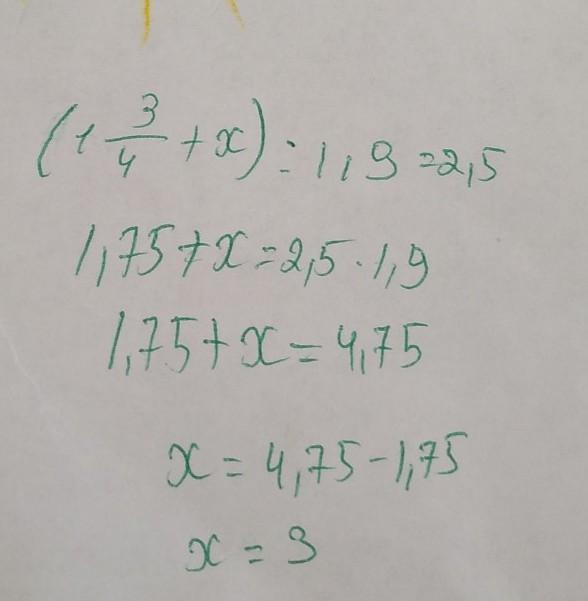 (1 3/4 + x) : 1,9 = 2,5
1,75 + x = 2,5 · 1,9
1,75 + x = 4,75
x = 4,75 - 1,75
x = 3